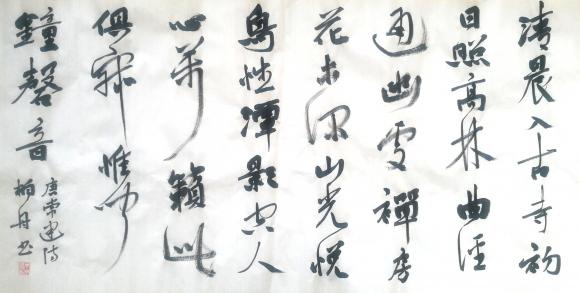 清晨入古寺初
日照高林曲徑
通幽處禪房
花木深山光悦
鳥性潭影空人
心萬籟此
俱寂惟聞
鐘磬音
唐常建詩
书